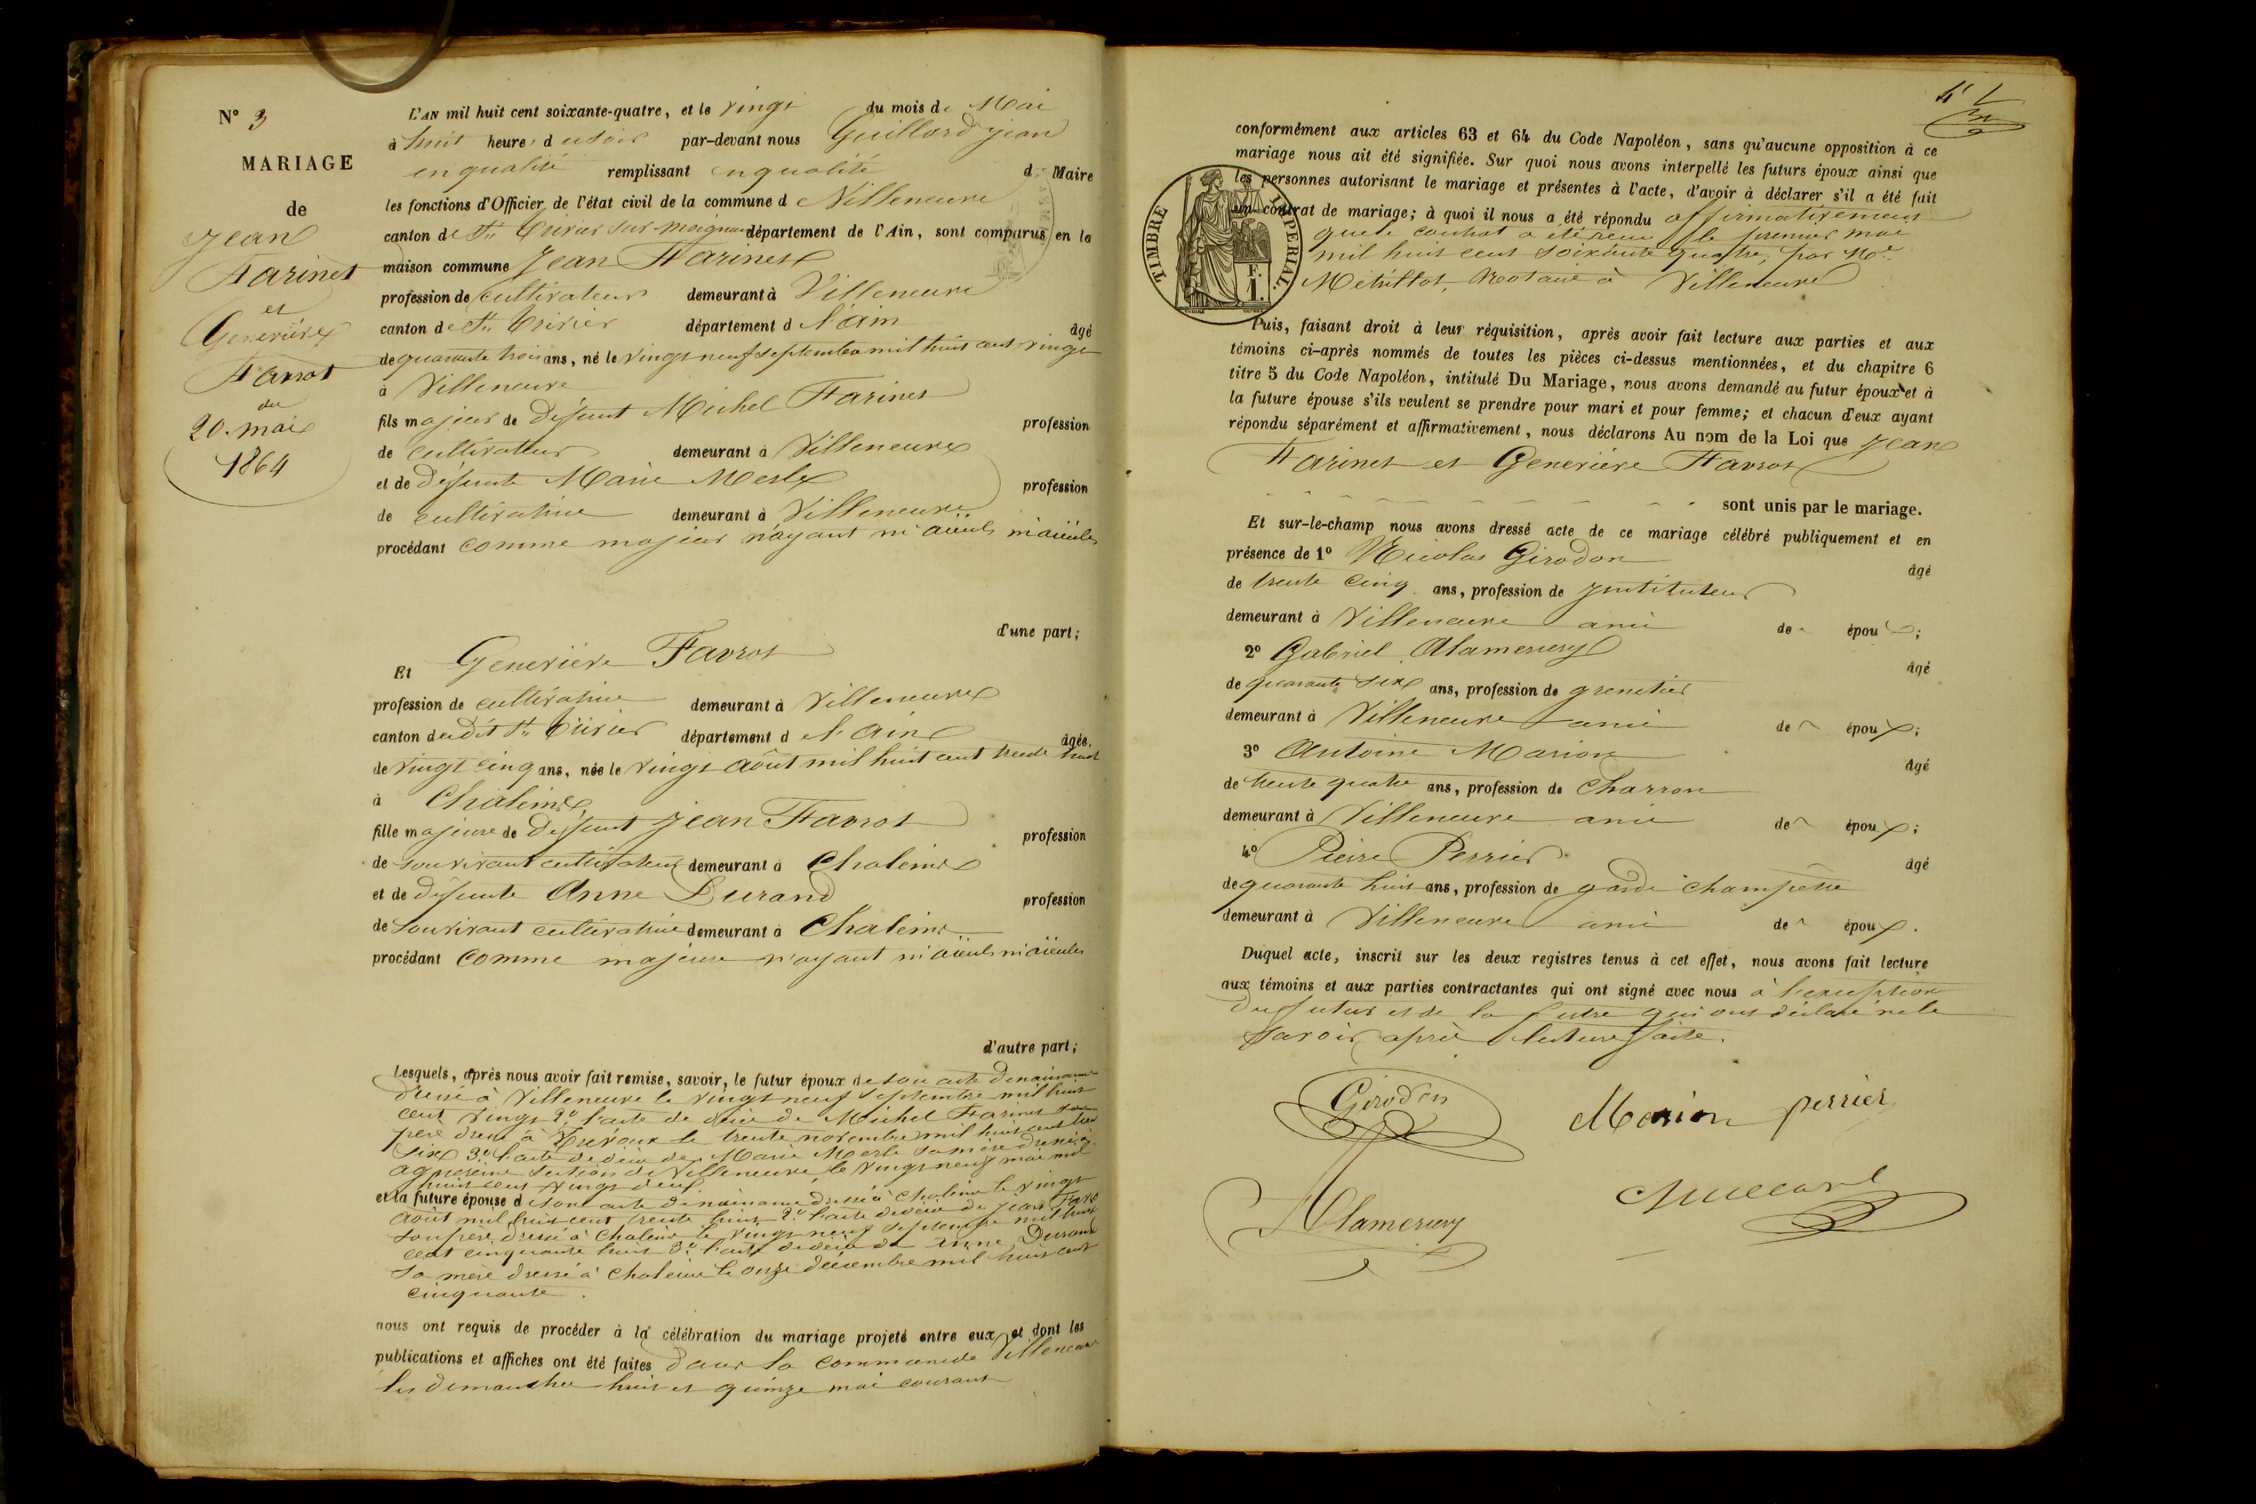 N° 3
MARIAGE
de
Jean
Farinet
et
Geneviève
Favrot
du
20 mai
1864
L'AN mil huit cent soixante-quatre, et le vingt du mois de Mai
à huit heures du soir par-devant nous Guillard Jean
en qualité remplissant en qualité de Maire
les fonctions d'Officier de l'état civil de la commune de Villeneuve
canton de St Trivier sur moignans département de l'Ain, sont comparus en la
maison commune Jean Farinet
profession de cultivateur demeurant à Villeneuve
canton de St Trivier département de l'ain âgé
de quarante trois ans, né le vingt neuf septembre mil huit cent vingt
à Villeneuve
fils majeur de défunt Michel Farinet profession
de cultivateur demeurant à Villeneuve
et de défunte Marie Merle profession
de cultivatrice demeurant à Villeneuve
procédant comme majeur n'ayant ni aïeuls ni aïeules
d'une part;
Et Geneviève Favrot
profession de cultivatrice demeurant à Villeneuve
canton dudit St Trivier département de l'Ain âgée
de vingt cinq ans, née le vingt août mil huit cent trente huit
à Chaleins
fille majeure de défunt Jean Favrot profession
de son vivant cultivateur demeurant à Chaleins
et de défunte Anne Durand profession
de son vivant cultivatrice demeurant à Chaleins
procédant comme majeure n'ayant ni aïeuls ni aïeules
d'autre part;
Lesquels, après nous avoir fait remise, savoir, le futur époux de son acte de naissance
dressé à Villeneuve le vingt neuf septembre mil huit
cent vingt 2° l'acte de décès de Michel Farinet son
père dressé à Trévoux le trente novembre mil huit cent
six 3° l'acte de décès de Marie Merle sa mère dressé à
section de Villeneuve, le vingt neuf mai mil
huit cent vingt deux
et la future épouse de son acte de naissance dressé à Chaleins le vingt
août mil huit cent trente huit 2° l'acte de décès de Jean Favrot
son père dressé à Chaleins le vingt neuf septembre mil huit
cent cinquante huit 3° l'acte de décès de Anne Durand
sa mère dressé à Chaleins le onze décembre mil huit cent
cinquante.
nous ont requis de procéder à la célébration du mariage projeté entre eux, et dont les
publications et affiches ont été faites dans la commune de Villeneuve
les dimanches huit et quinze mai courant
conformément aux articles 63 et 64 du Code Napoléon, sans qu'aucune opposition à ce
mariage nous ait été signifiée. Sur quoi nous avons interpellé les futurs époux ainsi que
les personnes autorisant le mariage et présentes à l'acte, d'avoir à déclarer s'il a été fait
un contrat de mariage; à quoi il nous a été répondu affirmativement
que le contrat a été reçu le premier mai
mil huit cent soixante quatre, par Me
Métrillot, Notaire à Villeneuve
TIMBRE IMPERIAL.
F.
1.
Puis, faisant droit à leur réquisition, après avoir fait lecture aux parties et aux
témoins ci-après nommés de toutes les pièces ci-dessus mentionnées, et du chapitre 6
titre 5 du Code Napoléon, intitulé Du Mariage, nous avons demandé au futur époux et à
la future épouse s'ils veulent se prendre pour mari et pour femme; et chacun d'eux ayant
répondu séparément et affirmativement, nous déclarons Au nom de la Loi que Jean
Farinet et Geneviève Favrot
sont unis par le mariage.
Et sur-le-champ nous avons dressé acte de ce mariage célébré publiquement et en
présence de 1° Nicolas Girodon âgé
de trente cinq ans, profession de Instituteur
demeurant à Villeneuve ami des époux;
2° Gabriel Alamercery âgé
de quarante six ans, profession de grenetier
demeurant à Villeneuve ami des époux;
3° Antoine Marion âgé
de trente quatre ans, profession de Charron
demeurant à Villeneuve ami des époux;
4° Pierre Perrier âgé
de quarante huit ans, profession de garde champêtre
demeurant à Villeneuve ami des époux.
Duquel acte, inscrit sur les deux registres tenus à cet effet, nous avons fait lecture
aux témoins et aux parties contractantes qui ont signé avec nous à l'exception
du futur et de la future qui ont déclaré ne le
savoir après lecture faite.
Girodon
Marion
perrier
Alamercery